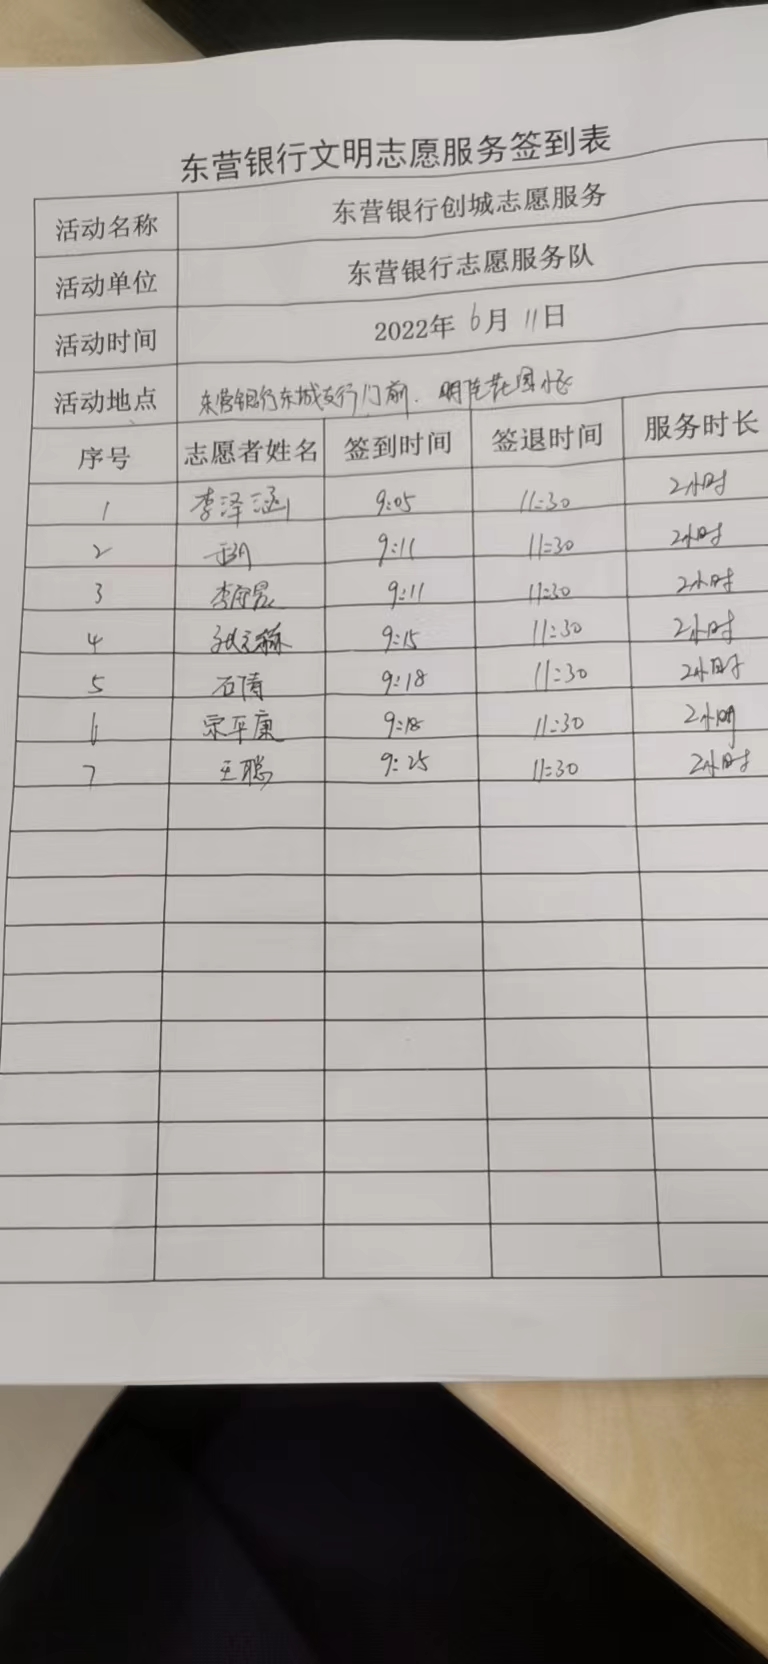 东营银行文明志愿服务签到表
活动名称 东营银行创城志愿服务
活动单位 东营银行志愿服务队
活动时间 2022年 6月 11日
活动地点 东营银行东城支行门前、明月花园小区
序号 志愿者姓名 签到时间 签退时间 服务时长
1 李泽涵 9:05 11:30 2小时
2 9:11 11:30 2小时
3 9:11 11:30 2小时
4 9:15 11:30 2小时
5 石倩 9:18 11:30 2小时
6 宋平康 9:18 11:30 2小时
7 王聪 9:25 11:30 2小时